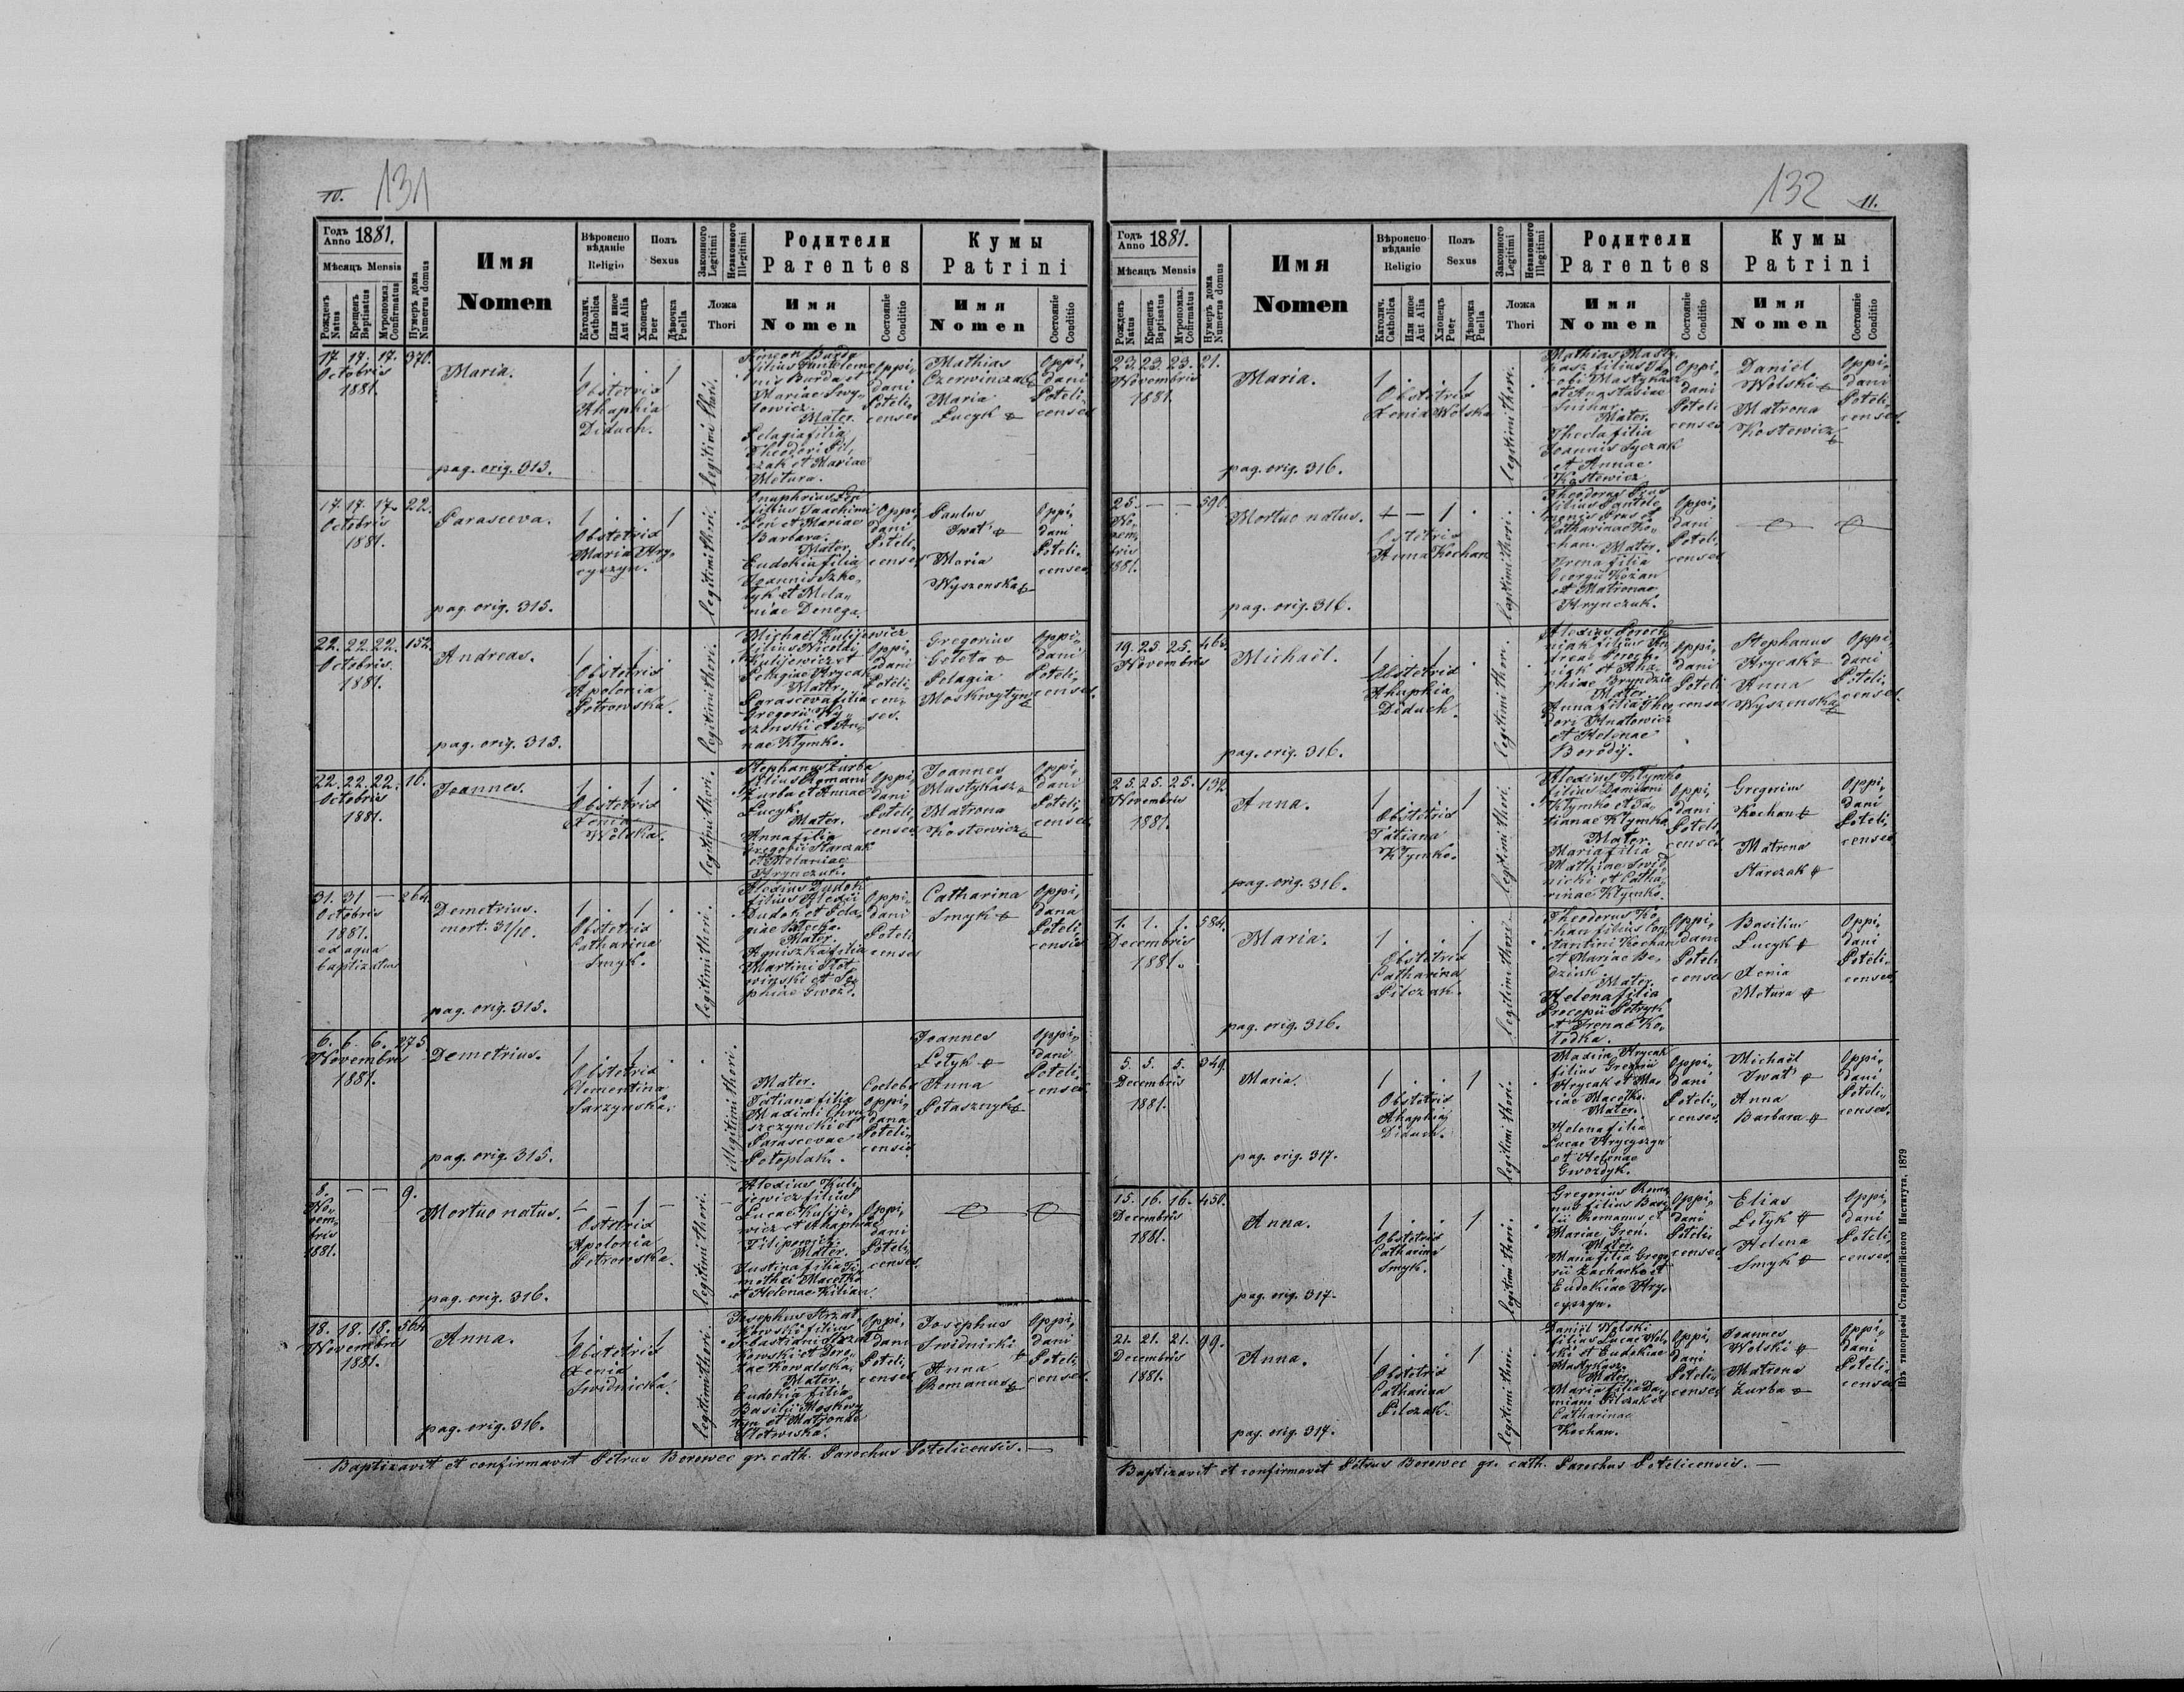 10. 131
Годъ Anno 1881.
Мѣсяцъ Mensis
Рожденъ Natus
Крещенъ Baptisatus
Мѵропомаз. Confirmatus
Нумеръ дома Numerus domus
Имя
Nomen
Вѣроисповѣданіе
Religio
Католич. Catholica
Или иное Aut Alia
Полъ
Sexus
Хлопецъ Puer
Дѣвочка Puella
Законного Legitimi
Незаконного Illegitimi
Ложа
Thori
Родители
Parentes
Имя
Nomen
Состояніе Conditio
Кумы
Patrini
Имя
Nomen
Состояніе Conditio
17. 17. 17. 370.
Octobris
1881.
Maria.
1 . . 1
Obstetrix
Ahaphia
Diduch.
pag. orig. 313.
legitimi thori.
Simeon Burda
filius Panteleimo
nis Burda et
Mariae
Mater.
Pelagia filia
Theodori Pil,
czak et Mariae
Metura.
Oppi,
dani
Poteli,
censes
Mathias
Czerwinczak
Maria
Lucyk
Oppi,
dani
Poteli,
censes
17. 17. 17. 22.
Octobris
1881.
Parasceva.
1 . . 1
Obstetrix
Maria Hry,
cyszyn.
pag. orig. 315.
legitimi thori.
Onuphrius
filius Joachimi
et Mariae
Barbara.
Mater.
Eudokia filia
Joannis Szko,
lyk et Mela,
niae Denega.
Oppi,
dani
Poteli,
censes
Paulus
Iwat'
Maria
Wyszenska
Oppi,
dani
Poteli,
censes
22. 22. 22. 152.
Octobris
1881.
Andreas.
1 . 1 .
Obstetrix
Apolonia
Petrowska.
pag. orig. 313.
legitimi thori.
Michaël Kulijewicz
filius Nicolai
Kulijewicz et
Pelagiae Hrycak
Mater.
Parasceva filia
Gregorii Wy,
szenski et An,
nae Kłymko.
Oppi,
dani
Poteli,
cen,
ses.
Gregorius
Goleta
Pelagia
Moskwytyn
Oppi,
dani
Poteli,
censes.
22. 22. 22. 16.
Octobris
1881.
Joannes.
1 . 1 .
Obstetrix
Xenia
Wolska.
legitimi thori.
Stephanus Zurba
filius Romani
Zurba et Annae
Lucyk.
Mater.
Anna filia
Gregorii Starczak
et Melaniae
Hrynczuk.
Oppi,
dani
Poteli,
censes
Joannes
Mastykasz
Matrona
Kostewicz
Oppi,
dani
Poteli,
censes
31. 31 — 264.
Octobris
1881.
ex aqua
baptizatus
Demetrius.
mort. 31/10.
1 . 1 .
Obstetrix
Catharina
Smyk.
pag. orig. 315.
legitimi thori.
Alexius Dudok
filius Alexii
Dudok et Pela,
giae
Mater.
Agniszka filia
Martini Słot,
winski et So,
phiae Gwozd.
Oppi,
dani
Poteli,
censes
Catharina
Smyk
Oppi,
dana
Poteli,
censis
6. 6. 6. 275
Novembris
1881.
Demetrius.
1 . 1 .
Obstetrix
Clementina
Sarzynska.
pag. orig. 315.
illegitimi thori.
Mater.
Tatiana filia
Maximi Chru,
szczynski et
Parascevae
Potopłak.
Coelebs
Oppi,
dana
Poteli,
censis
Joannes
Letyk
Anna
Potasznyk
Oppi,
dani
Poteli,
censes
8. — — 9.
No,
vem,
bris
1881.
Mortuo natus.
— — 1 —
Obstetrix
Apolonia
Petrowska.
pag. orig. 316.
legitimi thori.
Alexius Kuli,
jewicz filius
Lucae Kulije,
wicz et Ahaphiae
Filipowicz.
Mater.
Justina filia Ti,
mothei Macetko
et Helenae Kilian.
Oppi,
dani
Poteli,
censes
18. 18. 18. 564.
Novembris
1881.
Anna.
1 . . 1
Obstetrix
Xenia
Swidnicka.
pag. orig. 316.
legitimi thori.
Josephus Strzał,
kowski filius
Sebastiani Strzał
kowski et Doro,
teae Kowalska.
Mater.
Eudokia filia
Basilii Moskwy
tyn et Matronae
Slotwiska.
Oppi,
dani
Poteli,
censes
Josephus
Swidnicki
Anna
Romanus
Oppi,
dani
Poteli,
censes
Baptizavit et confirmavit Petrus Borowec gr. cath. Parochus Potelicensis. —
132 11.
Годъ Anno 1881.
Мѣсяцъ Mensis
Рожденъ Natus
Крещенъ Baptisatus
Мѵропомаз. Cofirmatus
Нумеръ дома Numerus domus
Имя
Nomen
Вѣроисповѣданіе
Religio
Католич. Catholica
Или иное Aut Alia
Полъ
Sexus
Хлопецъ Puer
Дѣвочка Puella
Законного Legitimi
Незаконного Illegitimi
Ложа
Thori
Родители
Parentes
Имя
Nomen
Состояніе Conditio
Кумы
Patrini
Имя
Nomen
Состояніе Conditio
23. 23. 23. 21.
Novembris
1881.
Maria.
1 . . 1
Obstetrix
Xenia Wolska
pag. orig. 316.
legitimi thori.
Mathias Masty,
kasz filius Ja,
cobi Mastykasz
et Anastasiae
Mater.
Thecla filia
Joannis Syczak
et Annae
Kostewicz.
Oppi,
dani
Poteli
censes
Daniël
Wolski
Matrona
Kostewicz
Oppi,
dani
Poteli,
censes.
25. — — 590
No,
vem,
bris
1881.
Mortuo natus.
+ — 1 .
Obstetrix
Anna Kochan
pag. orig. 316.
legitimi thori.
Theodorus
filius Pantele,
monis et
Catharinae Ko,
chan. Mater.
Irena filia
Georgii Kozan
et Matronae
Hrynczuk.
Oppi,
dani
Poteli,
censes
19. 25. 25. 463.
Novembris
Michaël.
1 . 1 .
Obstetrix
Ahaphia
Diduch.
pag. orig. 316.
legitimi thori.
Alexius Poroch
niak filius An,
dreae Poroch,
niak et Aha,
phiae Bryndzia
Mater.
Anna filia Theo,
dori Hnatowicz
et Helenae
Borodij.
Oppi,
dani
Poteli
censes
Stephanus
Hrycak
Anna
Wyszenska
Oppi,
dani
Poteli,
censes.
25. 25. 25. 132.
Novembris
1881.
Anna.
1 . . 1
Obstetrix
Tatiana
Kłymko.
pag. orig. 316.
legitimi thori.
Alexius Kłymko
filius Damiani
Kłymko et Ta,
tianae Kłymko
Mater.
Maria filia
Mathiae Swid,
nicki et Catha,
rinae Kłymko.
Oppi,
dani
Poteli,
censes
Gregorius
Kochan
Matrona
Starczak
Oppi,
dani
Poteli,
censes
1. 1. 1. 584.
Decembris
1881.
Maria.
1 . . 1
Obstetrix
Catharina
Pilczak.
pag. orig. 316.
legitimi thori.
Theodorus Ko,
chan filius Con,
stantini Kochan
et Mariae Be,
dziuk.
Mater.
Helena filia
Procopii Petryk
et Irenae Ko,
lodka.
Oppi,
dani
Poteli
censes
Basilius
Lucyk
Xenia
Metura
Oppi,
dani
Poteli,
censes
5. 5. 5. 349.
Decembris
1881.
Maria.
1 . . 1
Obstetrix
Ahaphia
Diduch.
pag. orig. 317.
legitimi thori.
Maxim Hrycak
filius Gregorii
Hrycak et Ma,
riae Macetko.
Mater.
Helena filia
Lucae Hrycyszyn
et Helenae
Gwozdyk.
Oppi,
dani
Poteli,
censes.
Michaël
Iwat'
Anna
Barbara
Oppi,
dani
Poteli,
censes.
15. 16. 16. 450.
Decembris
1881.
Anna.
1 . . 1
Obstetrix
Catharina
Smyk.
pag. orig. 317.
legitimi thori.
Gregorius Roma
nus filius Basi,
lii Romanus et
Mariae Gren.
Mater.
Maria filia Grego
rii Zacharko et
Eudokiae Hry,
cyszyn.
Oppi,
dani
Poteli
censes
Elias
Letyk
Helena
Smyk
Oppi,
dani
Poteli,
censes
21. 21. 21. 99.
Decembris
1881.
Anna.
1 . . 1
Obstetrix
Catharina
Pilczak.
pag. orig. 317.
legitimi thori.
Daniël Wolski
filius Lucae Wol,
ski et Eudokiae
Mastykasz.
Mater.
Maria filia Da,
miani Pilczak et
Catharinae
Kochan.
Oppi,
dani
Poteli,
censes
Joannes
Wolski
Matrona
Zurba
Oppi,
dani
Poteli,
censes
Baptizavit et confirmavit Petrus Borowec gr. cath. Parochus Potelicensis. —
Изъ типографіи Ставропигійского Института, 1879